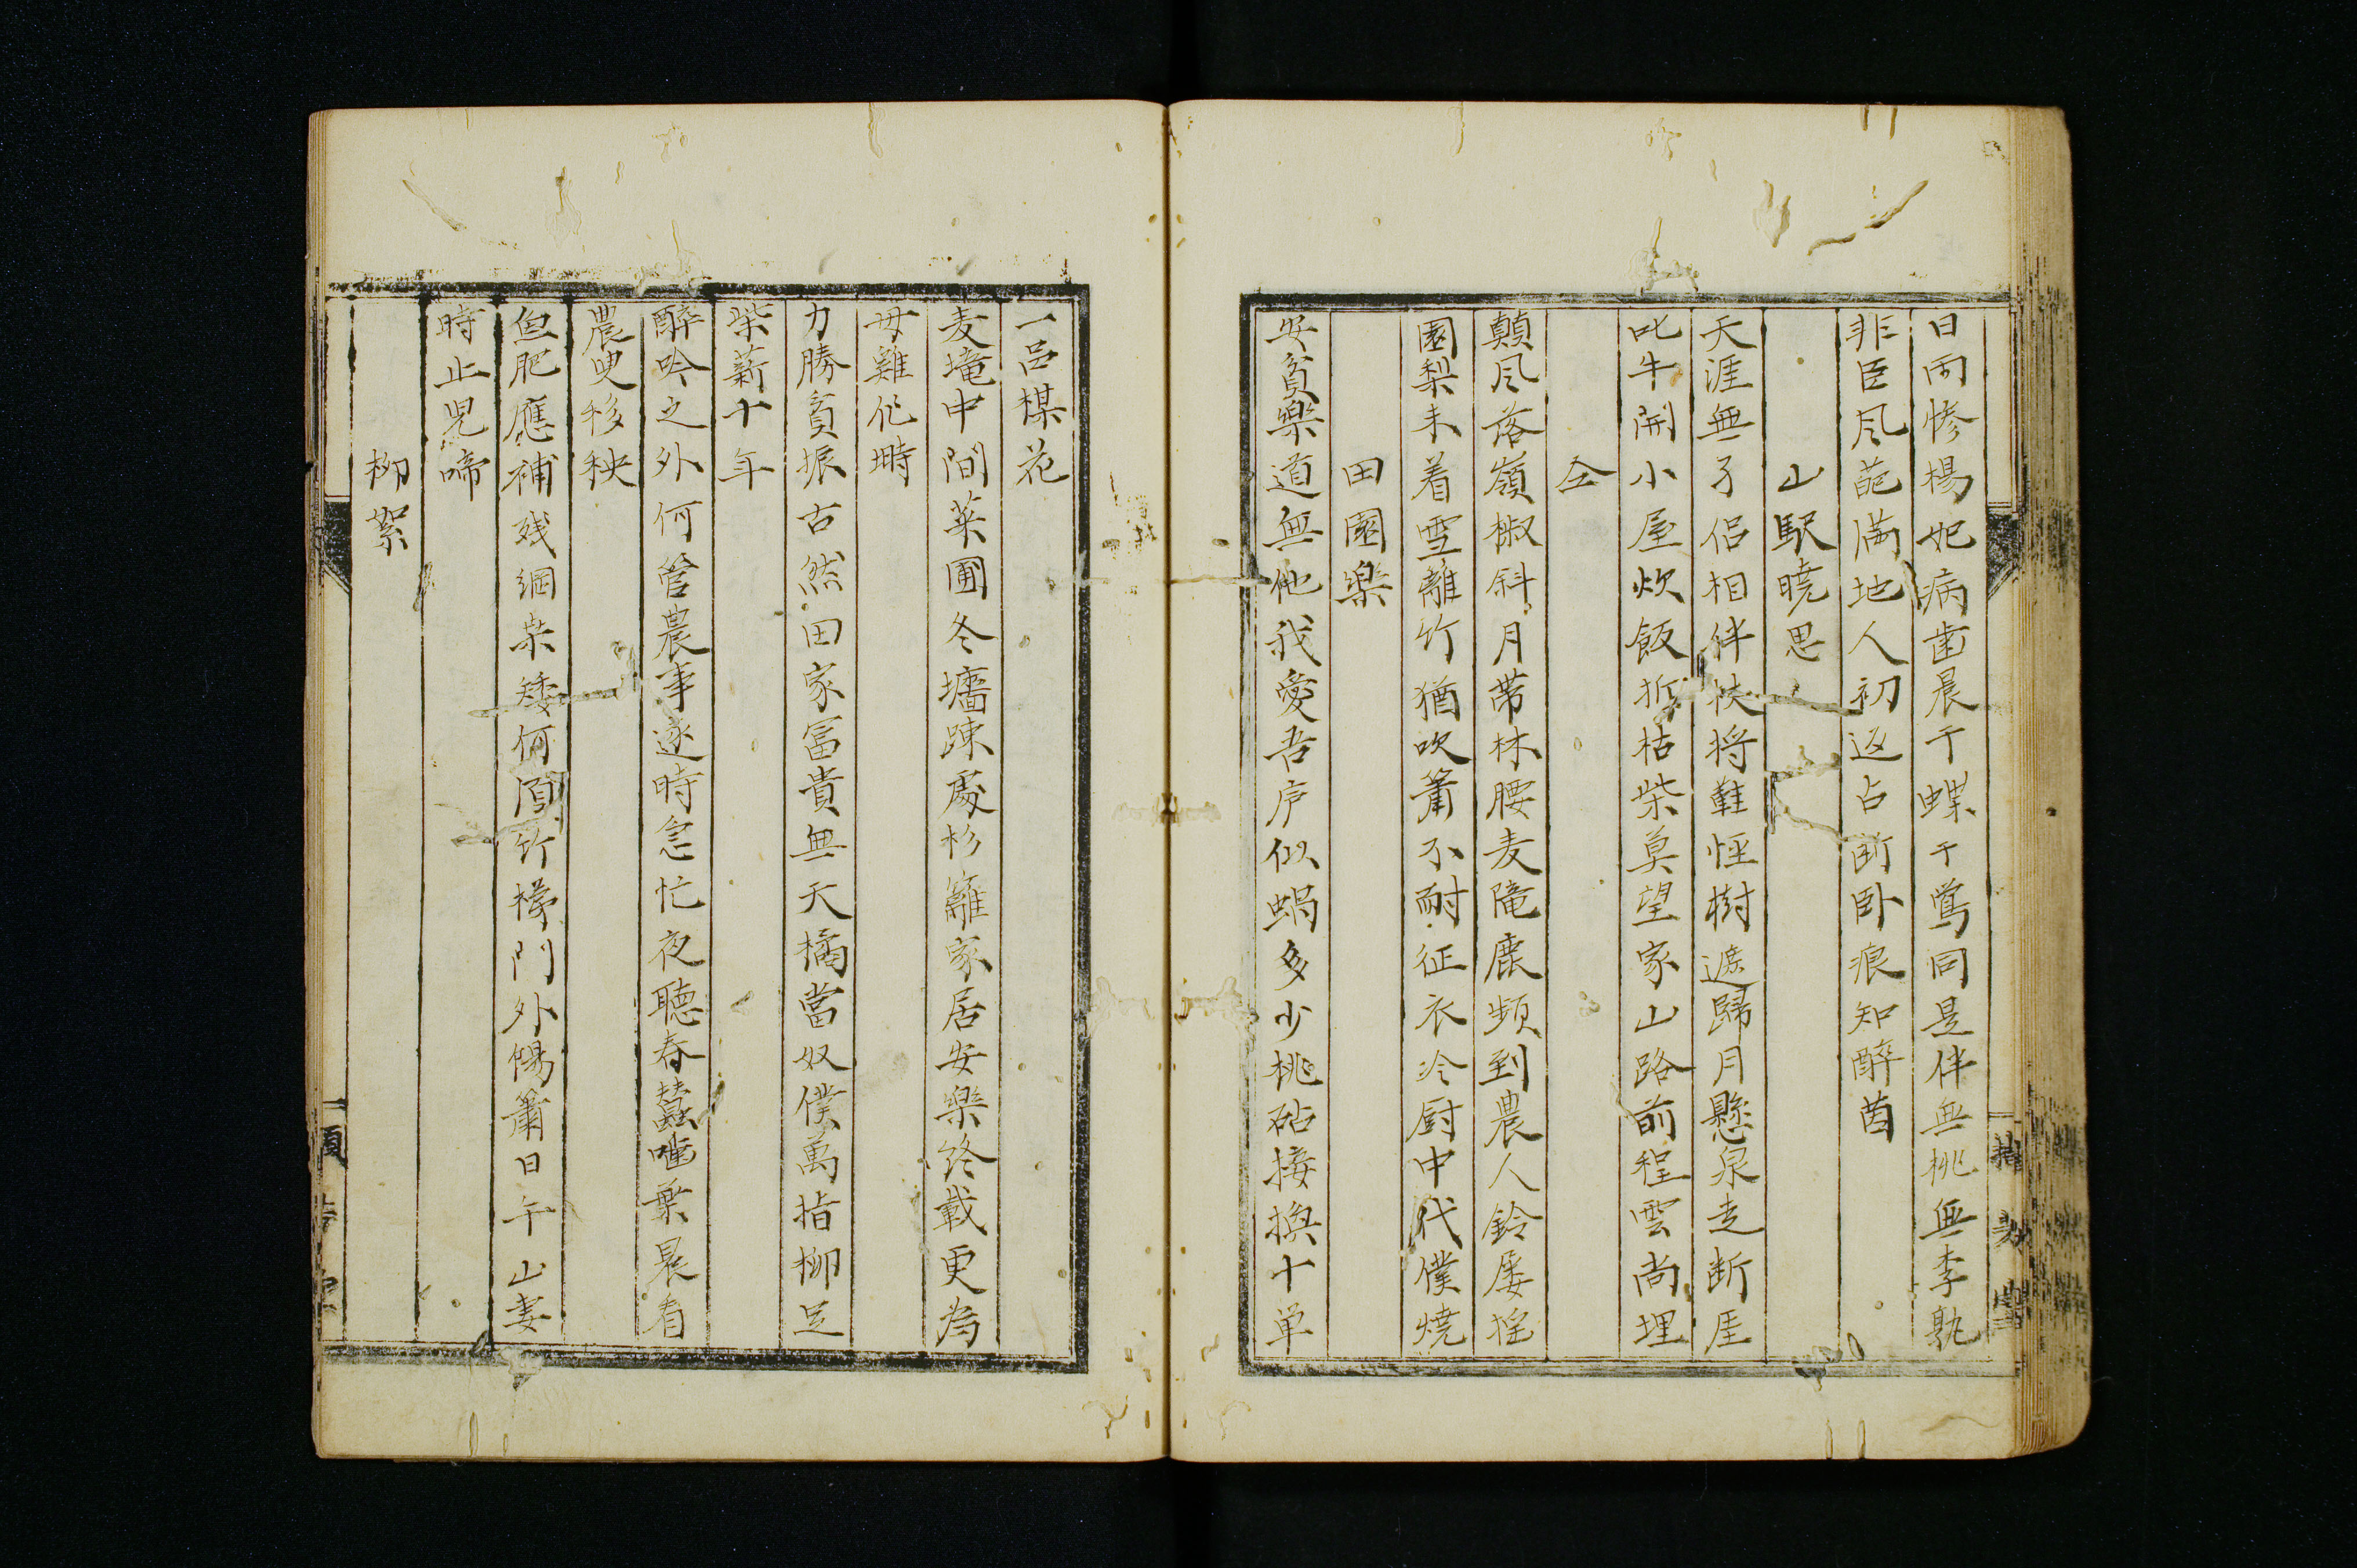 日雨惨楊妃病歯晨干蝶干鴬同是伴無桃無李孰
非臣風葩満地人初返占断卧痕知醉茵
山駅暁思
天涯無了侶相伴扶将鞋恠樹遮歸月懸泉走断厓
叱牛開小屋炊飯折枯柴莫望家山路前程雲尚埋
仝
顛風落嶺椒斜月帯林腰麦隴鹿頻到農人鈴屡揺
園梨未着雪離竹猶吹簫不耐征衣冷厨中代僕燒
田園樂
安貧樂道無他我愛吾庐似蝸多少桃砧接換十単
一呂楳花
麦壟中間菜圃冬墻踈處杉籬家居安樂終載更為
母雞化塒
力勝貧振古然田家冨貴無天橘當奴僕萬指柳足
柴薪十年
醉吟之外何管農事逐時怱忙夜聴春蠶囓葉晨看
農叟移秧
魚肥應補残網柴矮何須竹門外餳簫日午山妻
時止児啼
柳絮